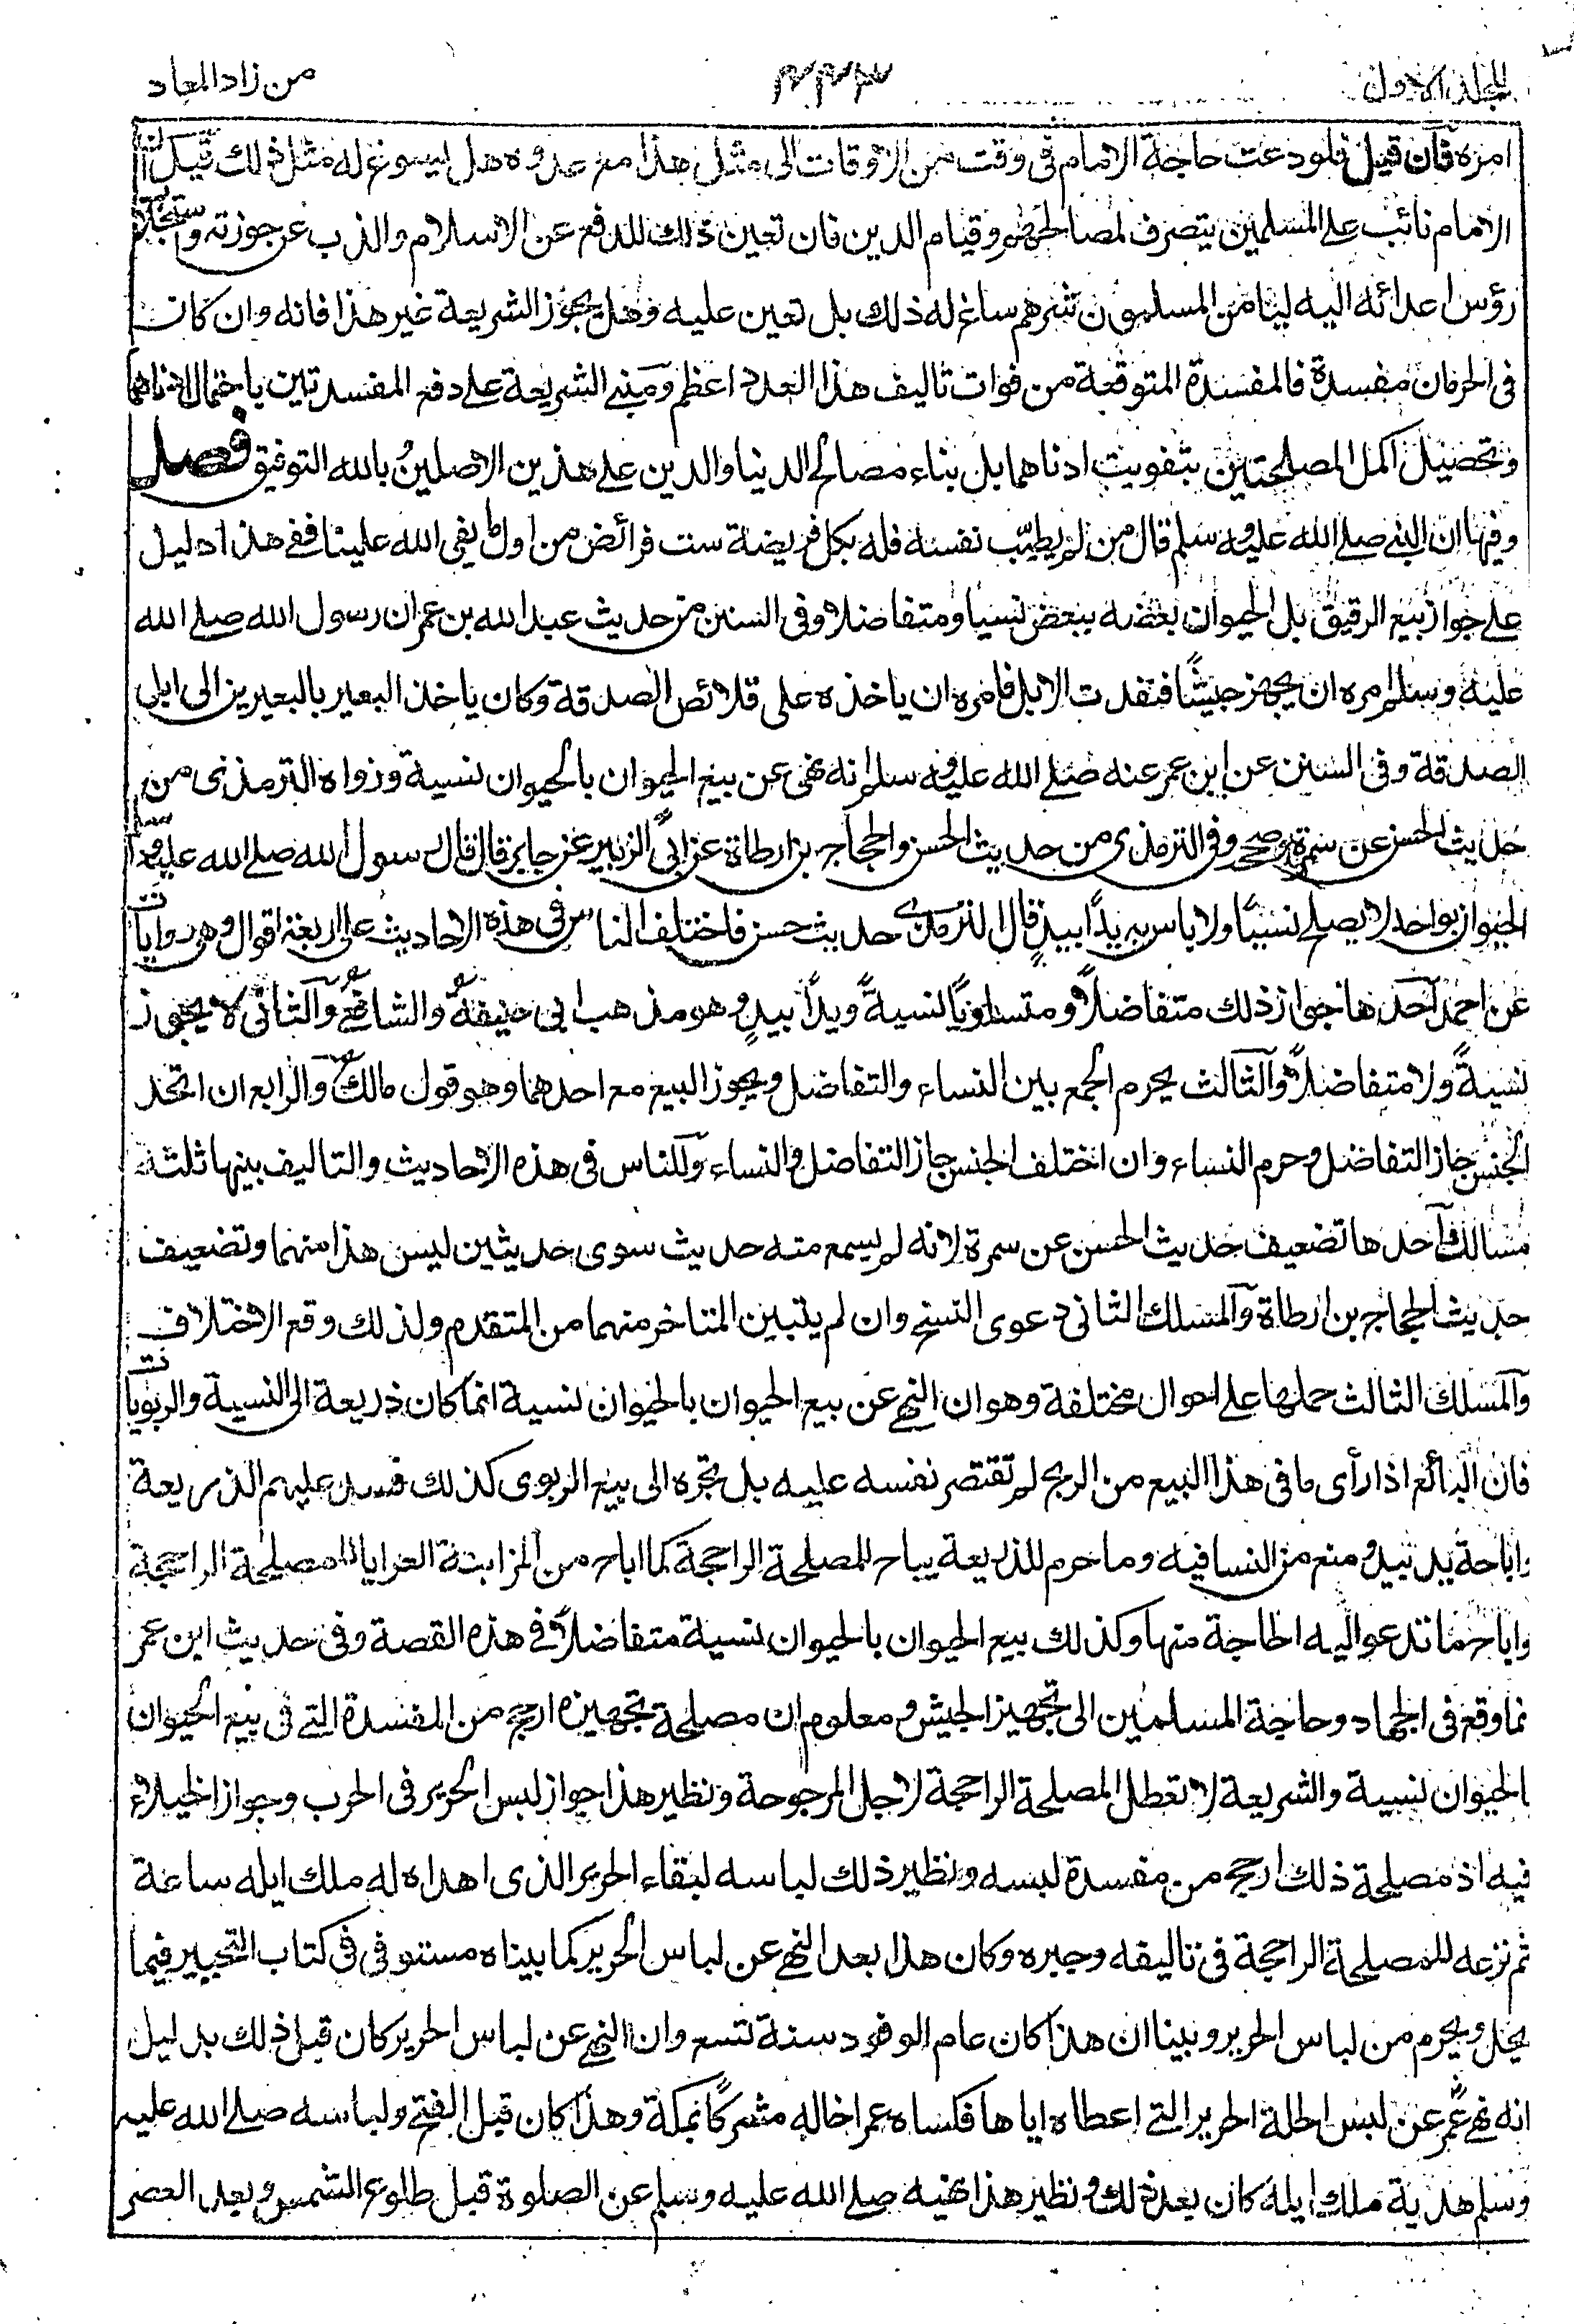 المجلد الاول ٤٤٣ من زاد المعاد
امره فان قيل فلو دعت حاجة الامام فى وقت من الاوقات الى مثل هذا مع عدوه هل يسوغ له مثل ذلك قيل
الامام نائب على المسلمين يتصرف لمصالحهم وقيام الدين فان تعين ذلك للدفع عن الاسلام والذب عن حوزته واستجلاب
رؤس اعدائه اليه ليأمن المسلمون شرهم ساغ له ذلك بل تعين عليه وهل يجوز الشريعة غير هذا فانه وان كان
فى الحرمان مفسدة فالمفسدة المتوقعة من فوات تاليف هذا العدد اعظم ومبنى الشريعة على دفع المفسدتين باحتمال ادناهما
وتحصيل اكمل المصلحتين بتفويت ادناهما بل بناء مصالح الدنيا والدين على هذين الاصلين بالله التوفيق فصل
وفيها ان النبى صلى الله عليه وسلم قال من لم يطيب نفسه فله بكل فريضة ست فرائض من اول ما يفى الله علينا ففى هذا دليل
على جواز بيع الرقيق بل الحيوان بعضه ببعض نسيا ومتفاضلا وفى السنن من حديث عبد الله بن عمر ان رسول الله صلى الله
عليه وسلم امره ان يجهز جيشًا فنفدت الابل فامره ان ياخذه على قلائص الصدقة وكان ياخذ البعير بالبعيرين الى ابل
الصدقة وفى السنن عن ابن عمر عنه صلى الله عليه وسلم انه نهى عن بيع الحيوان بالحيوان نسية ورواه الترمذى من
حديث الحسن عن سمرة وصححه وفى الترمذى من حديث الحسن والحجاج بن ارطاة عن ابى الزبير عن جابر قال قال رسول الله صلى الله عليه وسلم
الحيوان بواحد لا يصلح نسيًا ولا باس به يدًا بيدٍ قال الترمذى حديث حسن فاختلف الناس فى هذه الاحاديث على اربعة اقوال وهى روايات
عن احمد احدها جواز ذلك متفاضلاً ومتساويًا نسيةً ويدًا بيدٍ وهو مذهب ابى حنيفة والشافعى والثانى لا يجوز
نسيةً ولا متفاضلاً والثالث يحرم الجمع بين النساء والتفاضل ويجوز البيع مع احدهما وهو قول مالك والرابع ان اتحد
الجنس جاز التفاضل وحرم النساء وان اختلف الجنس جاز التفاضل والنساء وللناس فى هذه الاحاديث والتاليف بينها ثلثة
مسالك احدها تضعيف حديث الحسن عن سمرة لانه لم يسمع منه حديث سوى حديثين ليس هذا منهما وتضعيف
حديث الحجاج بن ارطاة والمسلك الثانى دعوى النسخ وان لم يتبين المتاخر منهما من المتقدم ولذلك وقع الاختلاف
والمسلك الثالث حملها على احوال مختلفة وهو ان النهى عن بيع الحيوان بالحيوان نسية انما كان ذريعة الى النسية والربويات
فان البائع اذا رأى ما فى هذا البيع من الربح لم تقتصر نفسه عليه بل تجره الى بيع الربوى كذلك فسد عليهم الذريعة
واباحة يد بيد ومنع من النسا فيه وما حرم للذريعة يباح للمصلحة الراجحة كما اباح من المزابنة العرايا للمصلحة الراجحة
واباح ما تدعو اليه الحاجة منها وكذلك بيع الحيوان بالحيوان نسية متفاضلاً فى هذه القصة وفى حديث ابن عمر
نما وقع فى الجهاد وحاجة المسلمين الى تجهيز الجيش ومعلوم ان مصلحة تجهيزه ارجح من المفسدة التى فى بيع الحيوان
بالحيوان نسيية والشريعة لا تعطل المصلحة الراجحة لاجل المرجوحة ونظير هذا جواز لبس الحرير فى الحرب وجواز الخيلاء
فيه اذ مصلحة ذلك ارجح من مفسدة لبسه ونظير ذلك لباسه لبقاء الحرير الذى اهداه له ملك ايله ساعة
ثم نزعه للمصلحة الراجحة فى تاليفه وجبره وكان هذا بعد النهى عن لباس الحرير كما بيناه مستوفى فى كتاب التحبير فيما
يحل ويحرم من لباس الحرير وبينا ان هذا كان عام الوفود سنة تسع وان النهى عن لباس الحرير كان قبل ذلك بدليل
انه نهى عمر عن لبس الحلة الحرير التى اعطاه اياها فكساه عمر اخا له مشركًا بمكة وهذا كان قبل الفتح ولباسه صلى الله عليه
وسلم هدية ملك ايله كان بعد ذلك ونظير هذا نهيه صلى الله عليه وسلم عن الصلوة قبل طلوع الشمس وبعد العصر